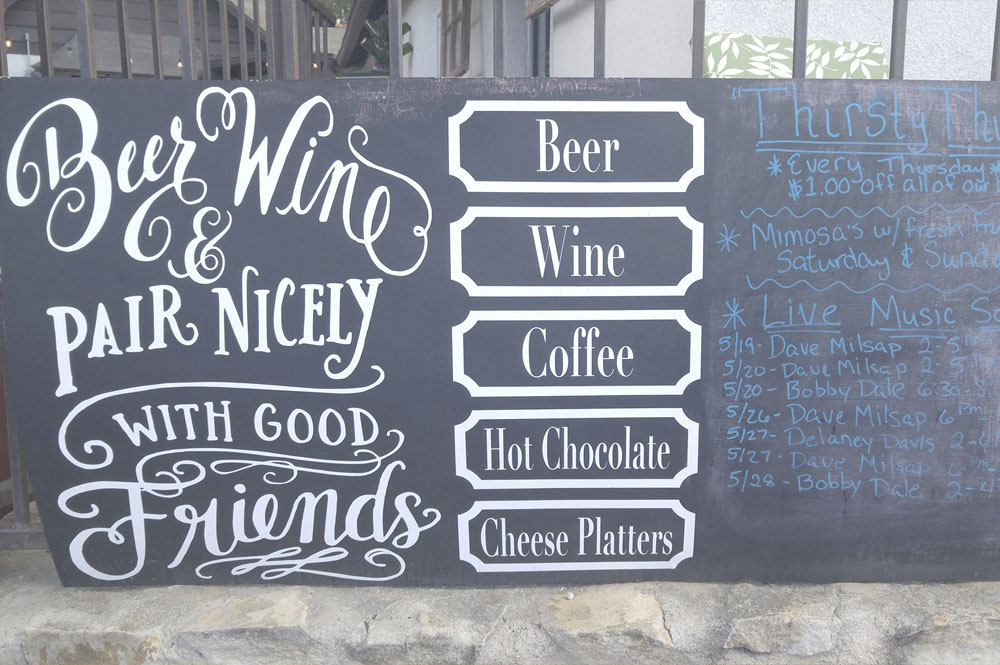 Beer Wine
&
PAIR NICELY
WITH GOOD
Friends
Beer
Wine
Coffee
Hot Chocolate
Cheese Platters
"Thirsty
*Every Thursday*
$1.00 off all of our
* Mimosa's w/ fresh
Saturday & Sund
* Live Music
5/19- Dave Milsap 2-5
5/20- Dave Milsap 2-5
5/20- Bobby Dale 6:30
5/26- Dave Milsap 6 Pm
5/27- Delaney Davis 2-
5/27- Dave Milsap
5/28- Bobby Dale 2-4